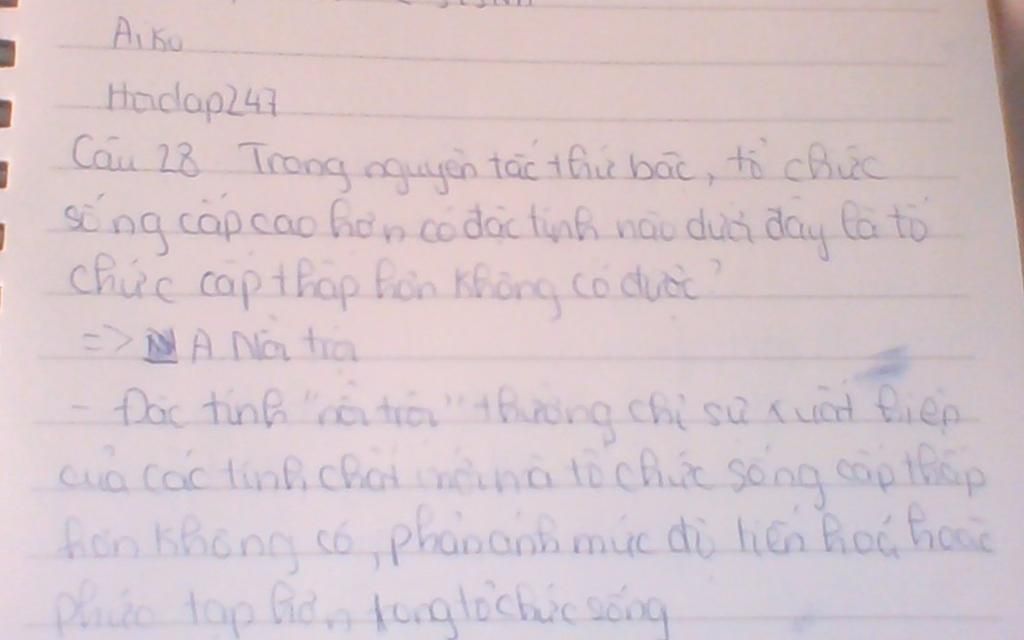 Aiko
Hoidap247
Câu 28 Trong nguyên tắc thứ bậc, tổ chức
sống cấp cao hơn có đặc tính nào dưới đây là tổ
chức cấp thấp hơn không có được?
=> A Nổi trội
- Đặc tính "nổi trội" thường chỉ sự xuất hiện
của các tính chất mới mà tổ chức sống cấp thấp
hơn không có, phản ánh mức độ tiến hoá hoặc
phức tạp hơn trong tổ chức sống